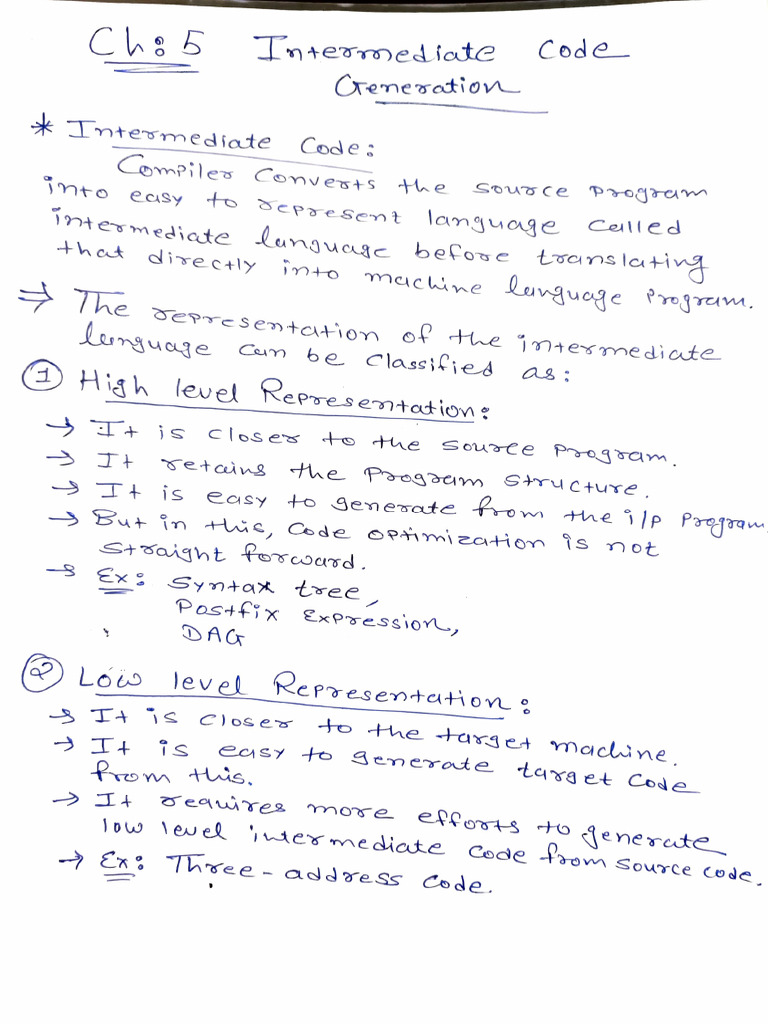 Ch: 5 Intermediate Code
Generation
* Intermediate Code:
Compiler Converts the source program
into easy to represent language called
intermediate language before translating
that directly into machine language program.
⇒ The representation of the intermediate
language can be classified as:
① High level Representation:
→ It is closer to the source program.
→ It retains the program structure.
→ It is easy to generate from the i/p program
→ But in this, Code optimization is not
straight forward.
→ Ex: Syntax tree,
Postfix Expression,
DAG
② Low level Representation:
→ It is closer to the target machine.
→ It is easy to generate target code
from this.
→ It requires more efforts to generate
low level intermediate code from source code.
→ Ex: Three-address code.